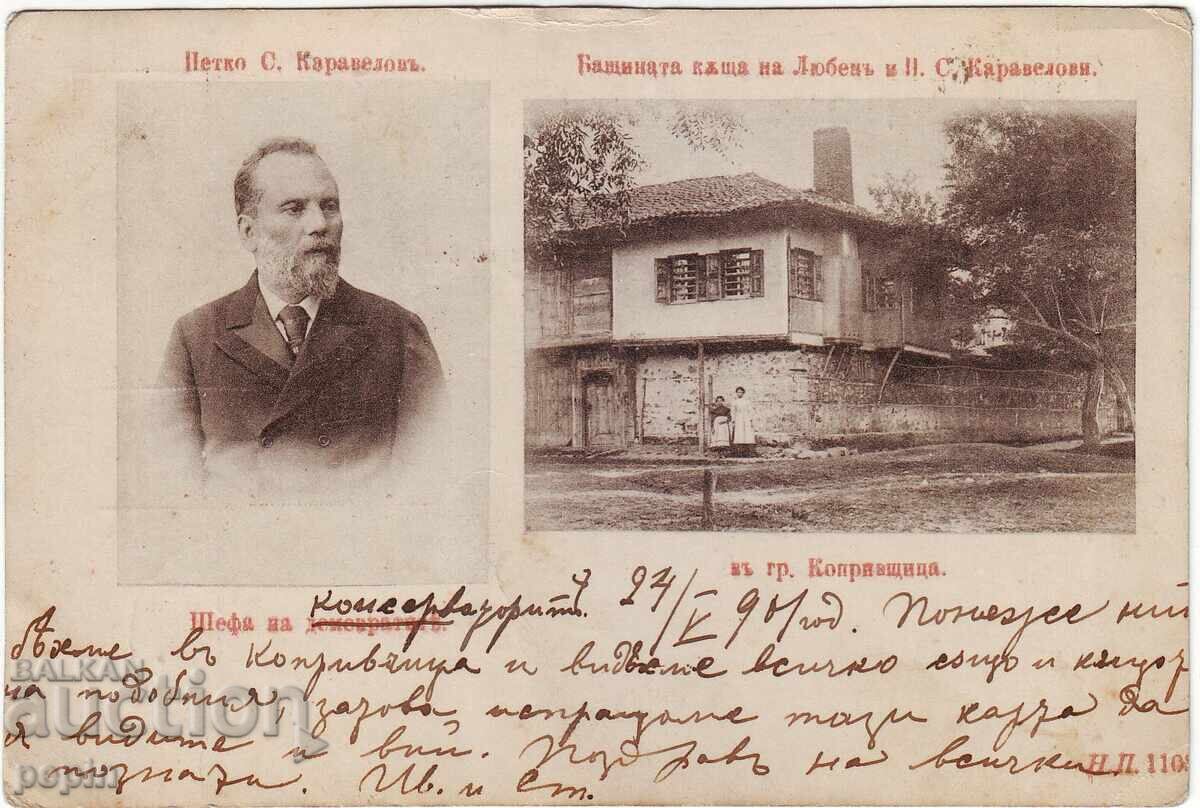 Петко С. Каравеловъ.
Бащината кѫща на Любенъ и П. С. Каравелови.
въ гр. Копривщица.
Шефа на демократитѣ.
консерваторитѣ.
24/V 901 год. Понеже ний
бѣхме въ Копривщица и видѣхме всичко също и
на подобния, затова испращаме тази карта да
я видите и вий. Поздравъ на всички
познати. Ив. и Ст.
Н.Л. 110
BALKAN
auction
pepin